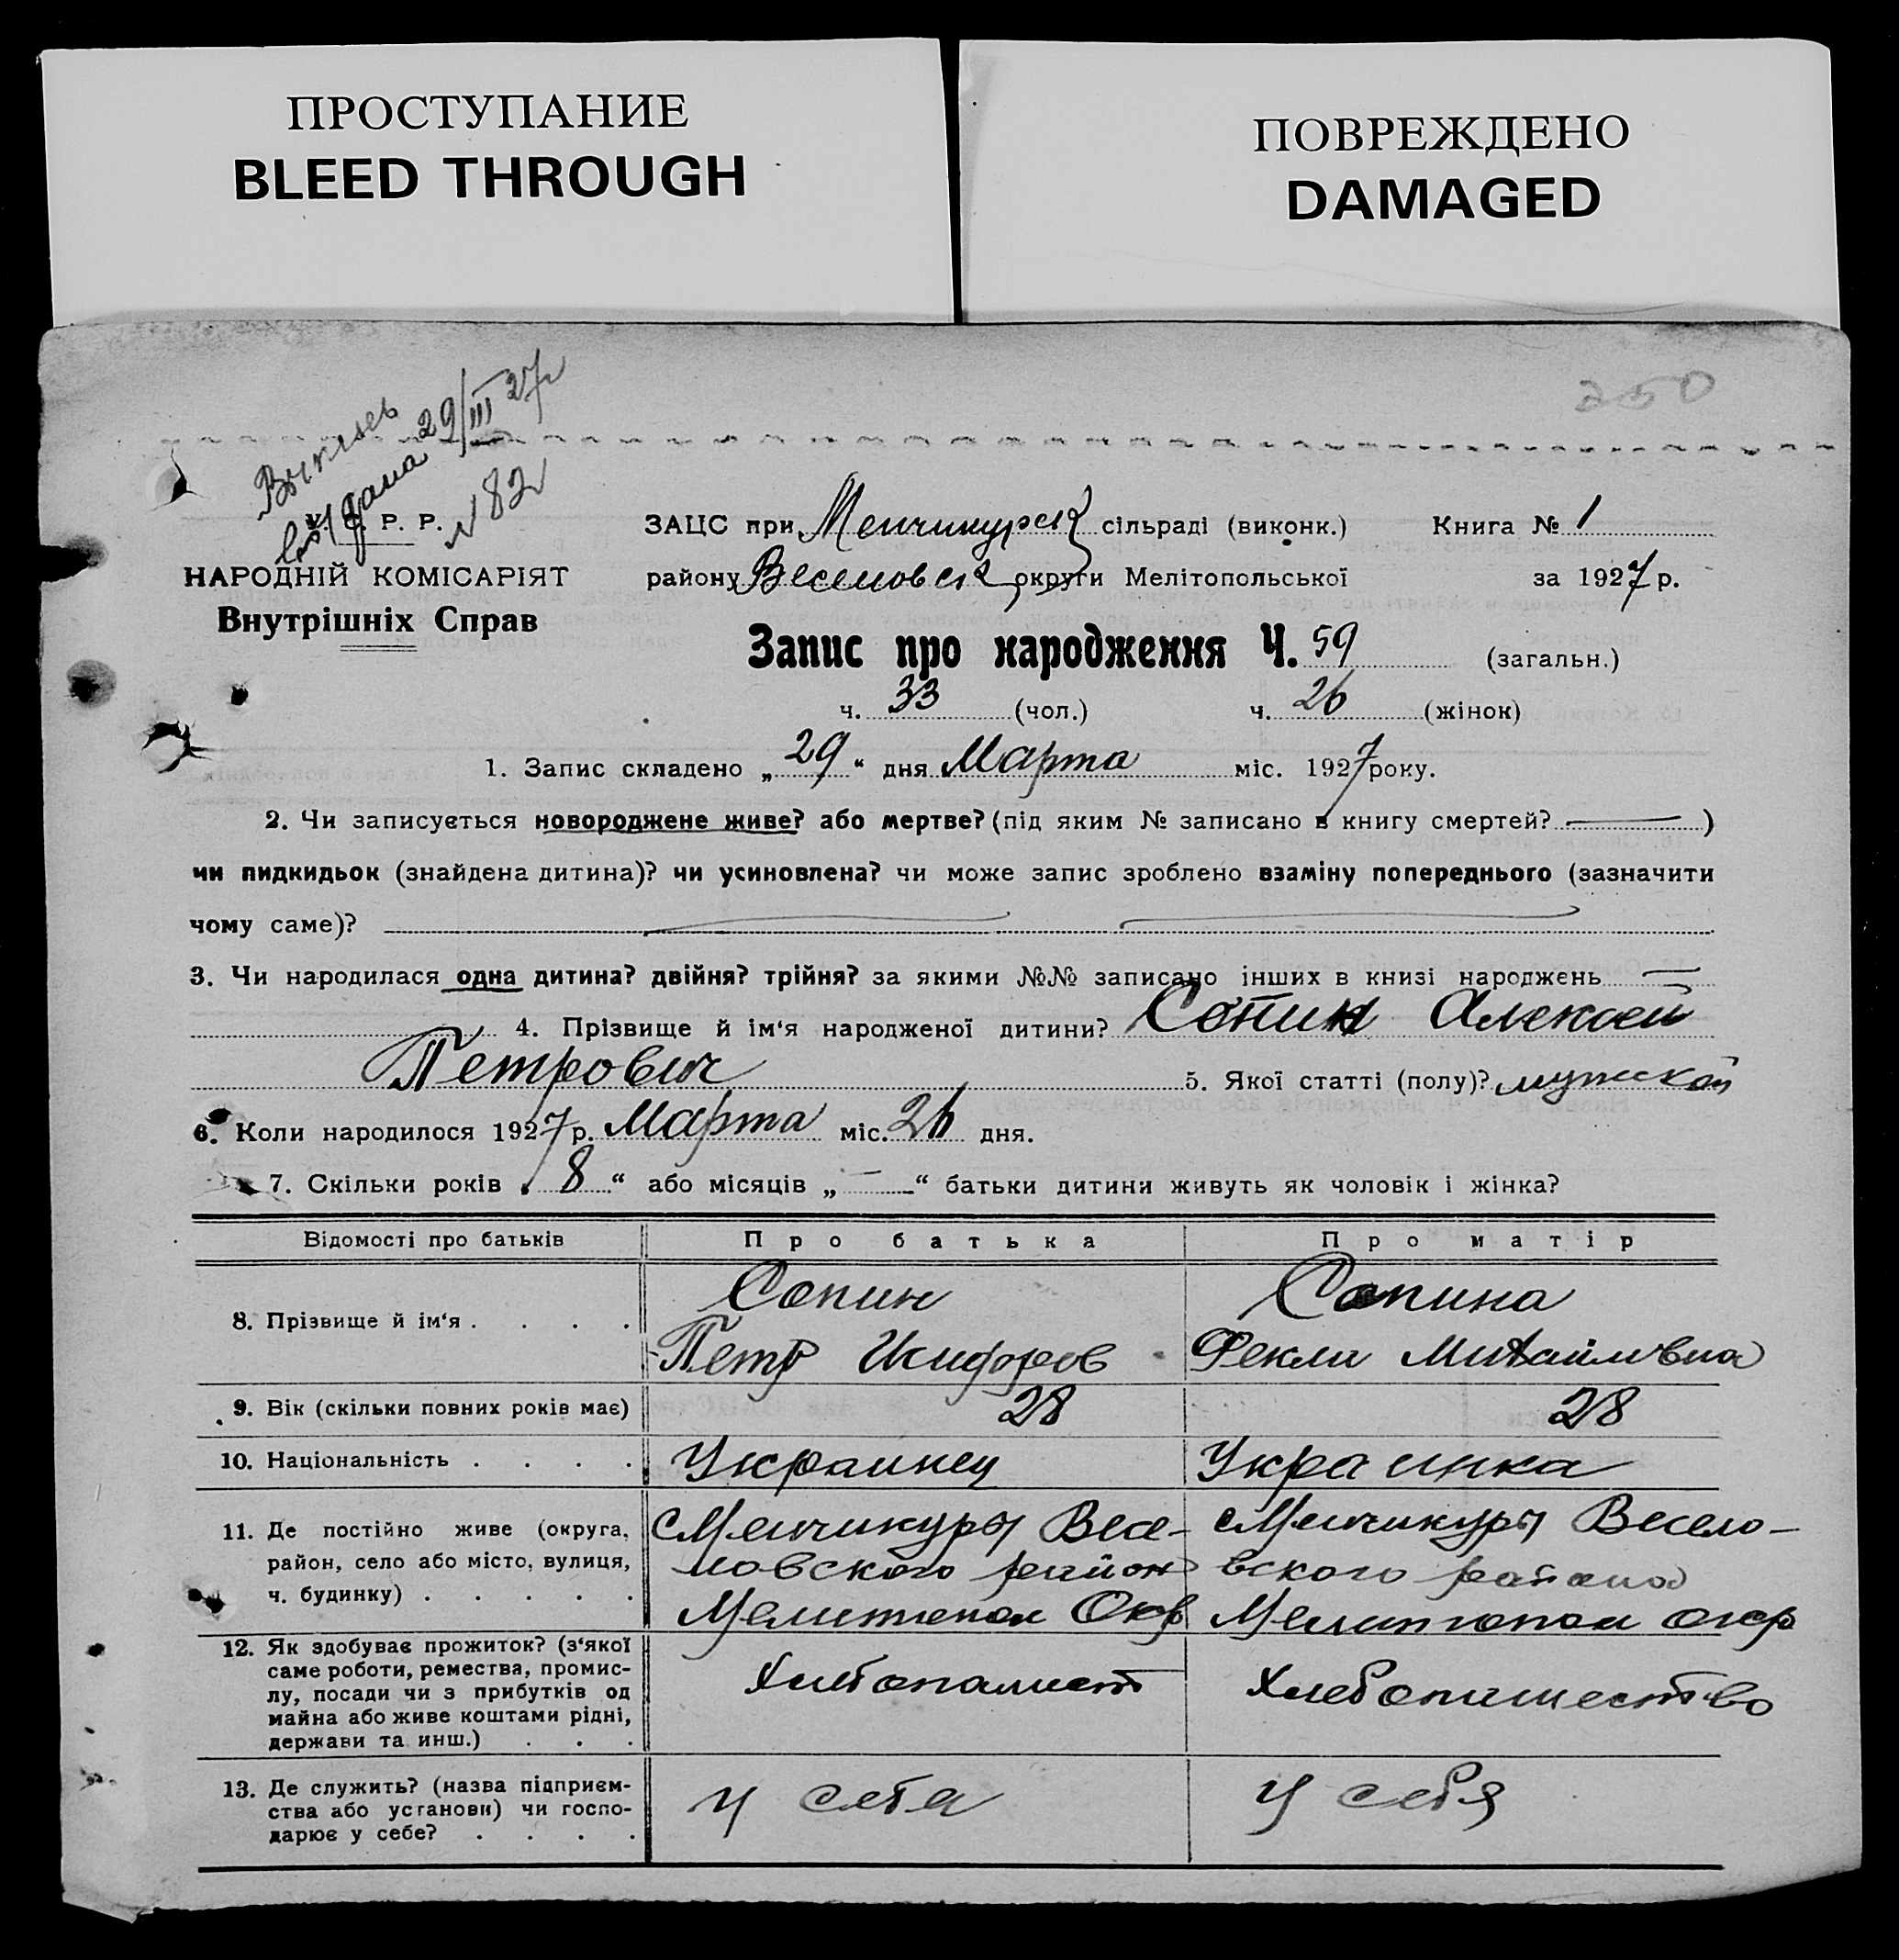 ПРОСТУПАНИЕ
BLEED THROUGH
ПОВРЕЖДЕНО
DAMAGED
250
Выпись
выдана 29/III 27 г
N 82
У. С. Р. Р.
НАРОДНІЙ КОМІСАРІЯТ
Внутрішніх Справ
ЗАЦС при Менчикурск сільраді (виконк.) Книга № 1
району Веселовск округи Мелітопольської за 1927 р.
Запис про народження Ч. 59 (загальн.)
ч. 33 (чол.) ч. 26 (жінок)
1. Запис складено „ 29 “ дня Марта міс. 1927 року.
2. Чи записується новороджене живе? або мертве? (під яким № записано в книгу смертей? — )
чи пидкидьок (знайдена дитина)? чи усиновлена? чи може запис зроблено взаміну попереднього (зазначити
чому саме)?
3. Чи народилася одна дитина? двійня? трійня? за якими №№ записано інших в книзі народжень —
4. Прізвище й ім‘я народженої дитини? Сопин Алексей
Петрович 5. Якої статті (полу)? мужской
6. Коли народилося 1927 р. Марта міс. 26 дня.
7. Скільки років „ 8 “ або місяців „ — “ батьки дитини живуть як чоловік і жінка?
Відомості про батьків Про батька Про матір
8. Прізвище й ім‘я . . . .
Сопин
Петр Никифоров
Сопина
Фекла Михайловна
9. Вік (скільки повних років має) 28 28
10. Національність . . . . Украинец Украинка
11. Де постійно живе (округа,
район, село або місто, вулиця,
ч. будинку) . . . . .
Менчикуры Весе-
ловского район
Мелитопол Окр
Менчикуры Весело-
вского района
Мелитопол окр
12. Як здобуває прожиток? (з‘якої
саме роботи, ремества, промис-
лу, посади чи з прибутків од
майна або живе коштами рідні,
держави та инш.) . . .
Хлебопашест
Хлебопашество
13. Де служить? (назва підприєм-
ства або установи) чи госпо-
дарює у себе? . . . .
у себя
у себя